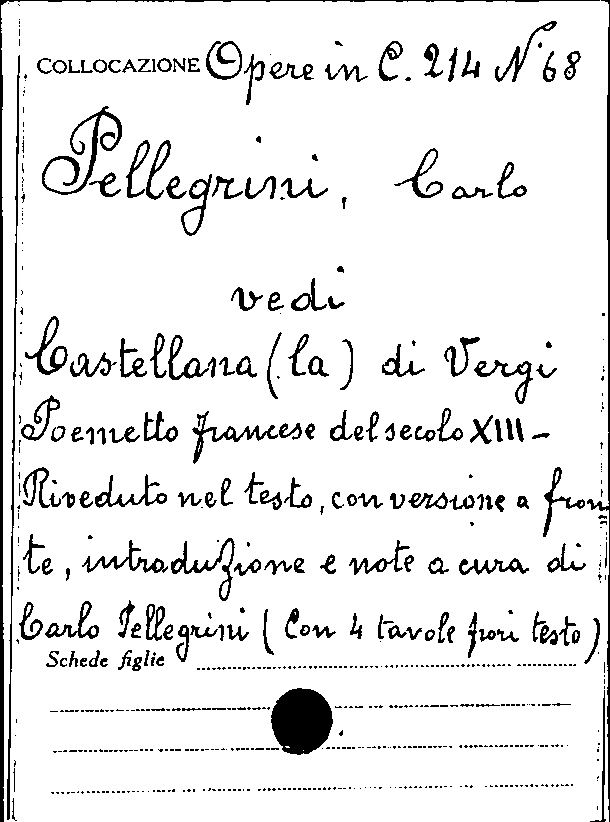 COLLOCAZIONE Opere in C. 214 N° 68
Pellegrini, Carlo
vedi
Castellana (la) di Vergi
Poemetto francese del secolo XIII -
Riveduto nel testo, con versione a fron
te, intraduzione e note a cura di
Carlo Pellegrini (Con 4 tavole fuori testo)
Schede figlie